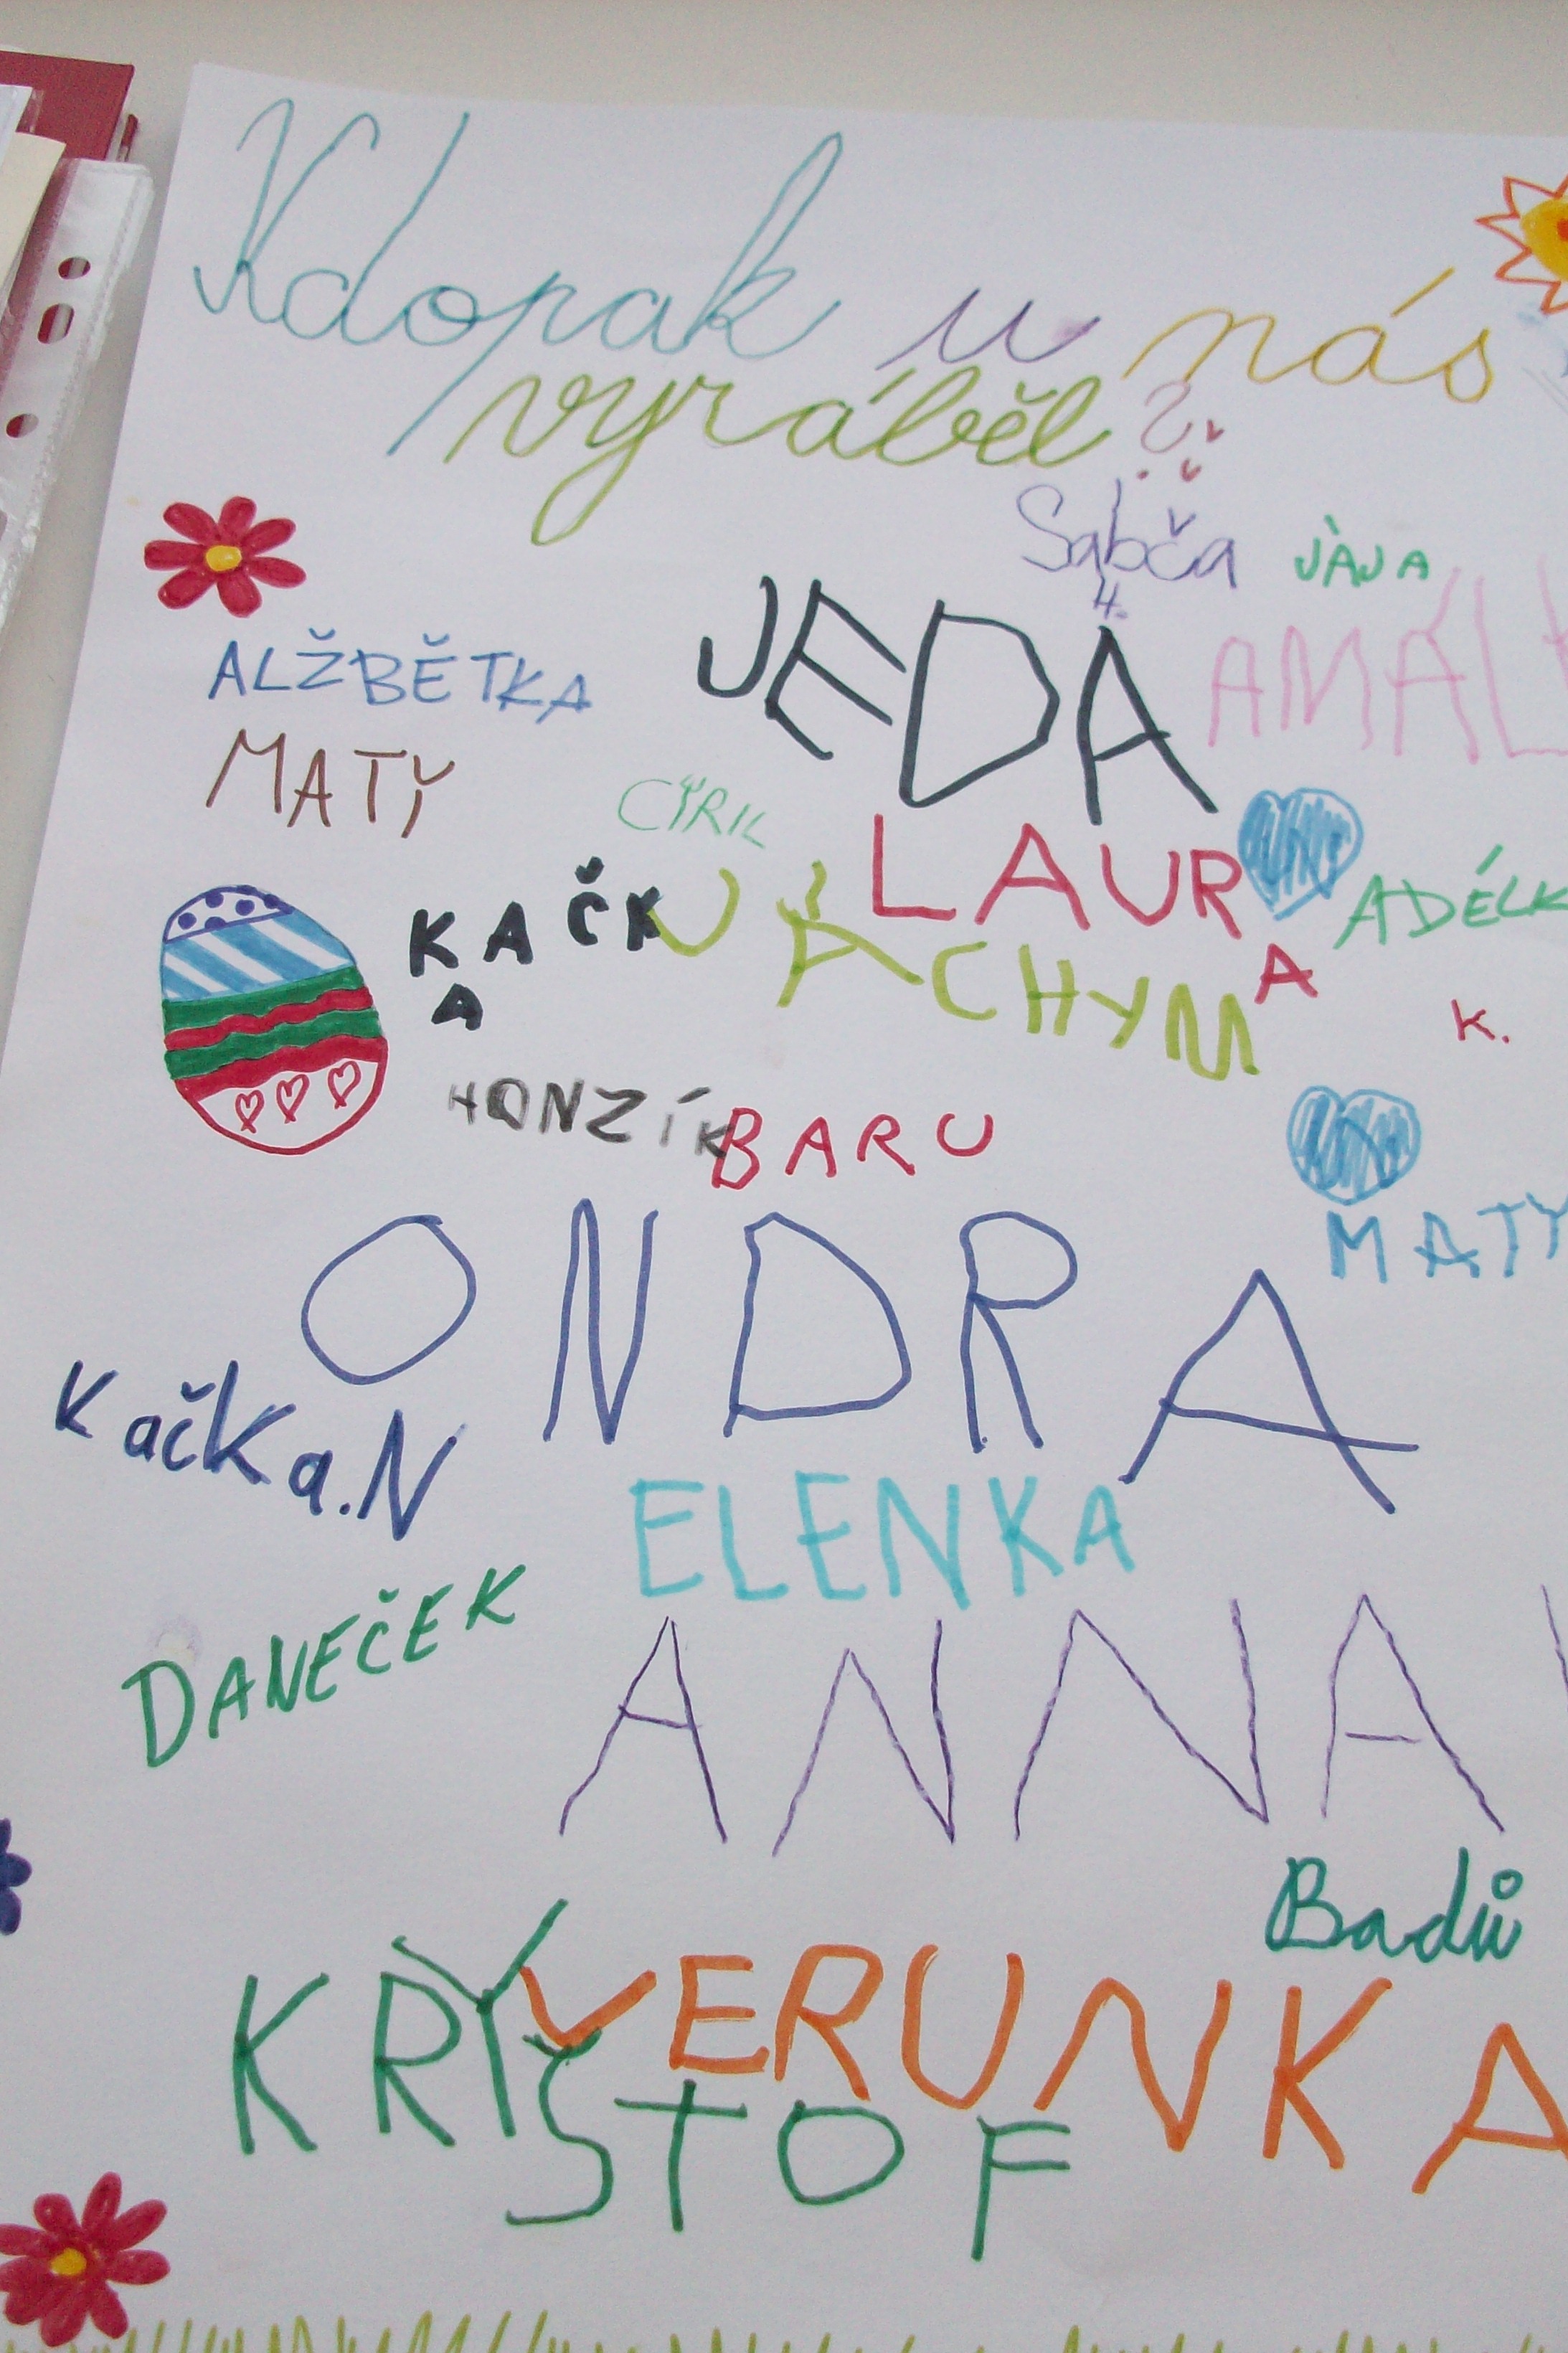 Kdopak u nás
vyráběl ?
Sabča JÁJA
4.
ALŽBĚTKA JEDA
MATÝ
CYRIL
LAURA ADÉLK
K.
KAČKA JÁCHYM
HONZÍK BARU
MATY
ONDRA
KačKa.N
ELENKA
DANEČEK
ANNA
Badů
KRYŠTOF VERUNKA